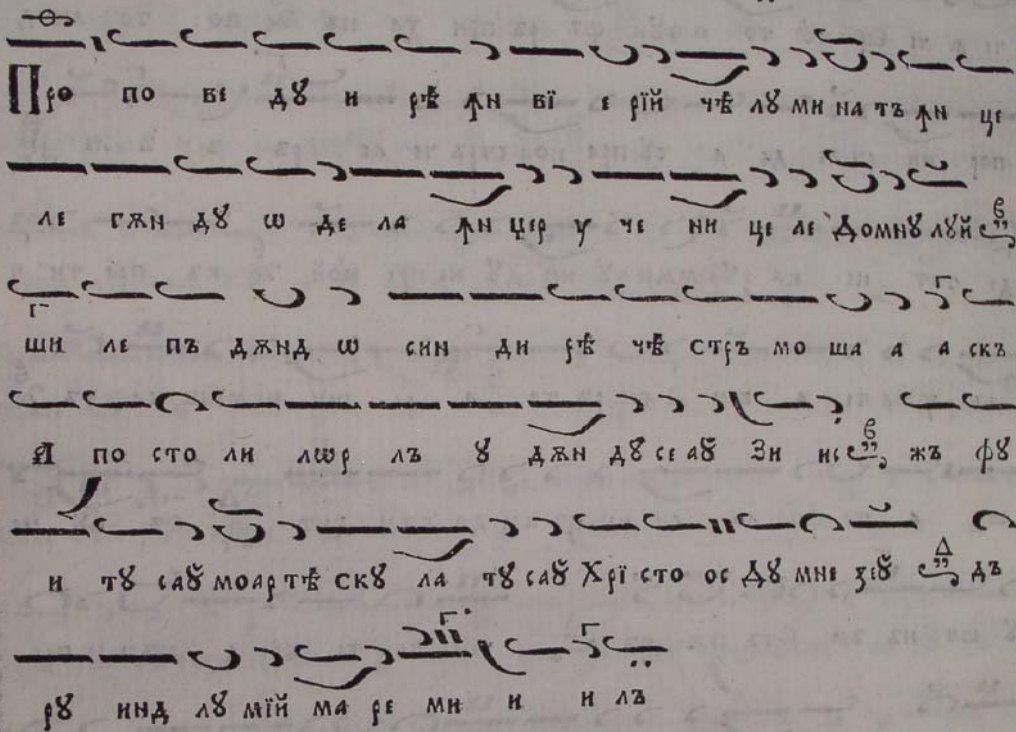 Про по ве дꙋ и рѣ ꙟн вї е рїй чѣ лꙋ ми на тъ ꙟн це
ле гѫн дꙋ ѡ де ла ꙟн цер у че ни це ле Домнꙋ лꙋй
ши ле пъ дѫнд ѡ син ди рѣ чѣ стръ мо ша а а скъ
А по сто ли лѡр лъ ꙋ дѫн дꙋ се аꙋ Зи ис жъ фꙋ
и тꙋ саꙋ моар тѣ скꙋ ла тꙋ саꙋ Хрї сто ос Дꙋ мне зеꙋ дъ
рꙋ инд лꙋ мїй ма ре ми и и лъ